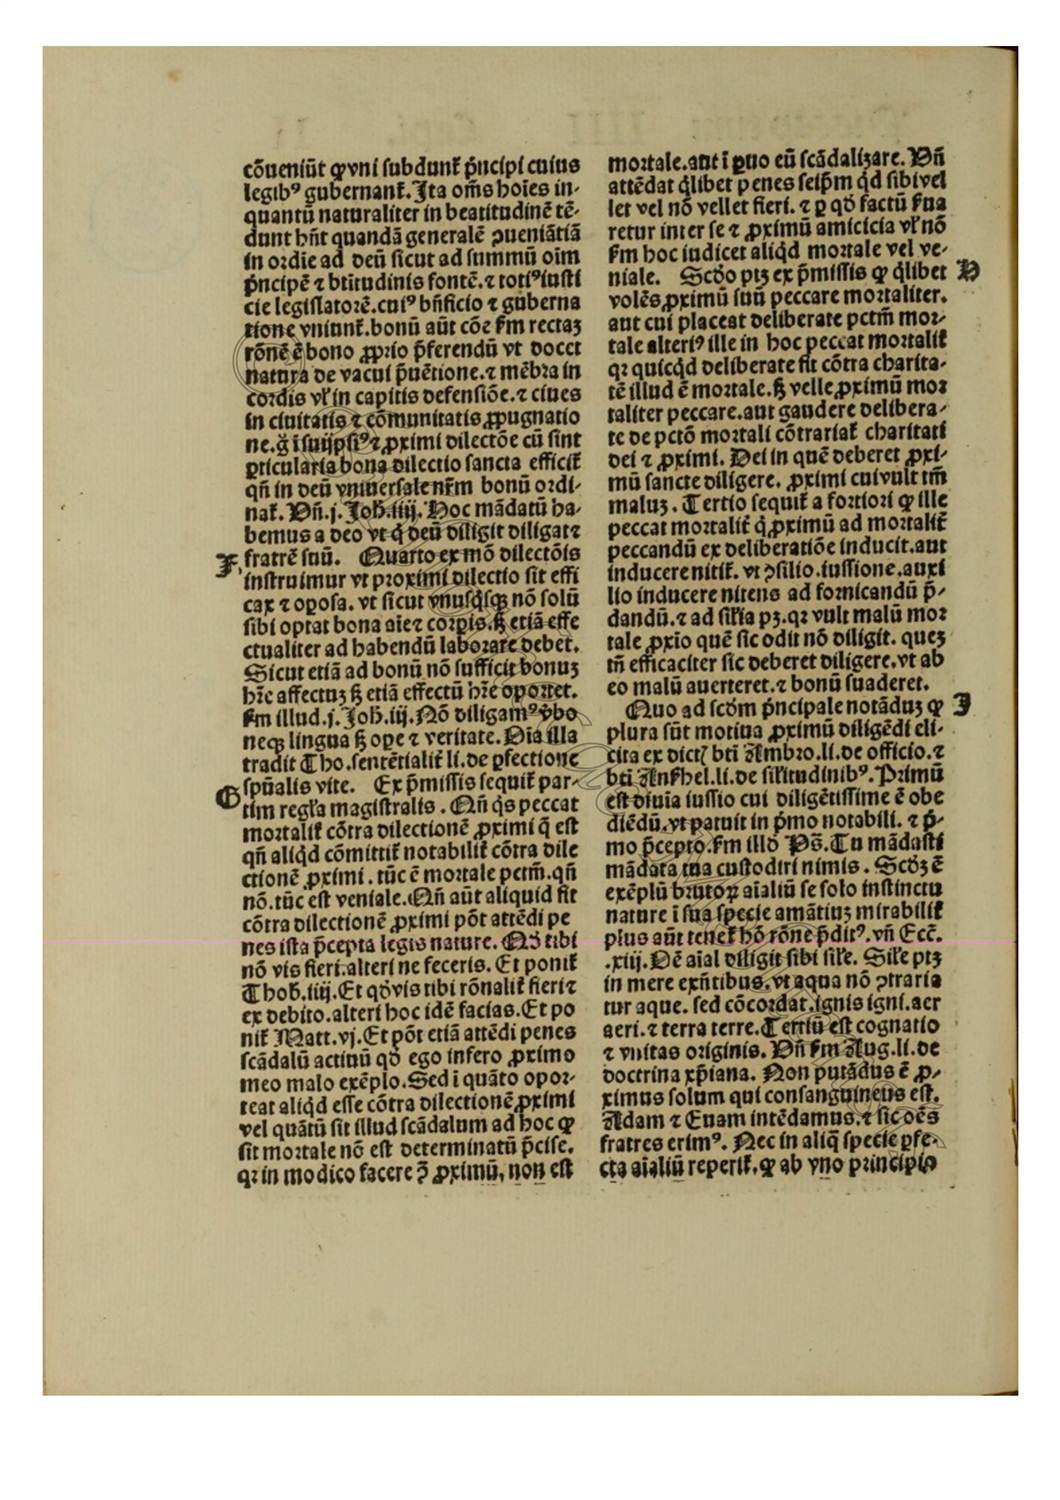 cõueniũt ꝙ vni subdunt᷑ pͥncipi cuius
legibꝰ gubernant᷑. Ita om̃s hoĩes in-
quantũ naturaliter in beatitudinẽ tẽ-
dunt hñt quandã generalẽ ꝯueniãtiã
in ordĩe ad deũ sicut ad summũ oĩm
pͥncipẽ ⁊ btĩtudinis fontẽ. ⁊ totiꝰ iusti
cie legislatorẽ. cuiꝰ bñficio ⁊ guberna
tione vniunt᷑. bonũ aũt cõe ẜm rectaꝫ
rõnẽ ẽ bono ꝓprio p̃ferendũ vt docet
natura de vacui p̃uẽtione. ⁊ mẽbra in
cordis vl̓ in capitis defensiõe. ⁊ ciues
in ciuitatis ⁊ cõmunitatis ꝓpugnatio
ne. g̃ ĩ suijpsiꝰ ⁊ ꝓximi dilectõe cũ sint
ꝑticularia bona dilectio sancta efficit᷑
qñ in deũ vniuersale nr̃m bonũ ordi-
nat᷑. Vñ .j. Joh̃. iiij. Hoc mãdatũ ha-
bemus a deo vt qͥ deũ diligit diligat ⁊
F fratrẽ suũ. Quarto ex mõ dilectõis
instruimur vt proximi dilectio sit effi
cax ⁊ oꝑosa. vt sicut vnusqͥsqꝫ nõ solũ
sibi optat bona aĩe ⁊ corꝑis. ẜꝫ etiã effe
ctualiter ad habendũ laborare debet.
Sicut etiã ad bonũ nõ sufficit bonuꝫ
hr̃e affectuꝫ ẜꝫ etiã effectũ hr̃e oportet.
ẜm illud .j. Joh̃. iij. Nõ diligamꝰ v̓bo
neqꝫ lingua ẜꝫ oꝑe ⁊ veritate. Dĩa illa
tradit Tho. sentẽtialit᷑ li. de ꝑfectione
G spũalis vite. Ex p̃missis sequit᷑ par-
tim regl̓a magistralis. Qñ qͥs peccat
mortalit᷑ cõtra dilectionẽ ꝓximi q̃ est
qñ aliqͥd cõmittit᷑ notabilit᷑ cõtra dile
ctionẽ ꝓximi. tũc ẽ mortale pctm̃. qñ
nõ. tũc est veniale. Qñ aũt aliquid fit
cõtra dilectionẽ ꝓximi põt attẽdi pe
nes ista p̃cepta legis nature. Qđ tibi
nõ vis fieri. alteri ne feceris. Et ponit᷑
Thob. iiij. Et qđ vis tibi rõnalit᷑ fieri ⁊
ex debito. alteri hoc idẽ facias. Et po
nit᷑ Matt. vj. Et põt etiã attẽdi penes
scãdalũ actiuũ qđ ego infero ꝓximo
meo malo exẽplo. Sed ĩ quãto opor-
teat aliqͥd esse cõtra dilectionẽ ꝓximi
vel quãtũ sit illud scãdalum ad hoc ꝙ
sit mortale nõ est determinatũ p̃cise.
qꝛ in modico facere ꝯ̃ ꝓximũ, non est
mortale. aut ĩ ꝑuo eũ scãdalizare. Vñ
attẽdat qͥlibet penes seip̃m qͥd sibi vel
let vel nõ vellet fieri. ⁊ ꝑ qđ factũ ẜua
retur inter se ⁊ ꝓximũ amicicia vl̓ nõ
ẜm hoc iudicet aliqͥd mortale vel ve-
niale. Scđo ptꝫ ex p̃missis ꝙ qͥlibet H
volẽs ꝓximũ suũ peccare mortaliter.
aut cui placeat deliberate pctm̃ mor-
tale alteriꝰ ille in hoc peccat mortalit᷑
qꝛ quicqͥd deliberate fit cõtra charita-
tẽ illud ẽ mortale. ẜꝫ velle ꝓximũ mor
taliter peccare. aut gaudere delibera-
te de pctõ mortali cõtrariat᷑ charitati
dei ⁊ ꝓximi. Dei in quẽ deberet ꝓxi-
mũ sancte diligere. ꝓximi cui vult tm̃
maluꝫ. Tertio sequit᷑ a fortiori ꝙ ille
peccat mortalit᷑ qͥ ꝓximũ ad mortalit᷑
peccandũ ex deliberatiõe inducit. aut
inducere nitit᷑. vt ꝯsilio. iussione. auxi
lio inducere nitens ad fornicandũ p̃-
dandũ. ⁊ ad sil̓ia pꝫ. qꝛ vult malũ mor
tale ꝓxĩo quẽ sic odit nõ diligit. queꝫ
tñ efficaciter sic deberet diligere. vt ab
eo malũ auerteret. ⁊ bonũ suaderet.
Quo ad scđm pͥncipale notãduꝫ ꝙ I
plura sũt motiua ꝓximũ diligẽdi eli-
cita ex dictꝭ bti Ambro. li. de officio. ⁊
bti Anẜhel. li. de sil̓itudinibꝰ. Primũ
est diuĩa iussio cui diligẽtissime ẽ obe
diẽdũ. vt patuit in pͥmo notabili. ⁊ pͥ-
mo p̃cepto. ẜm illđ Ps̃. Tu mãdasti
mãdata tua custodiri nimis. Scđꝫ ẽ
exẽplũ brutoꝝ aĩaliũ se solo instinctu
nature ĩ sua specie amãtiuꝫ mirabilit᷑
plus aũt tenet᷑ hõ rõne p̃ditꝰ. vñ Ecc̃.
.xiij. Oẽ aĩal diligit sibi sil̓e. Sil̓e ptꝫ
in mere exñtibus. vt aqua nõ ꝯtraria
tur aque. sed cõcordat. ignis igni. aer
aeri. ⁊ terra terre. Tertiũ est cognatio
⁊ vnitas originis. Vñ ẜm Aug. li. de
doctrina xp̃iana. Non putãdus ẽ ꝓ-
ximus solum qui consanguineus est.
Adam ⁊ Euam intẽdamus. ⁊ sic oẽs
fratres erimꝰ. Nec in aliq̃ specie ꝑfe-
cta aĩaliũ reperit᷑. ꝙ ab vno principio